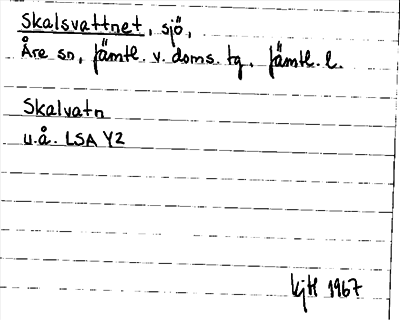 Skalsvattnet, sjö,
Åre sn, Jämtl. v. doms. tg, Jämtl. l.
Skalvatn
u.å. LSA Y2
kjH 1967